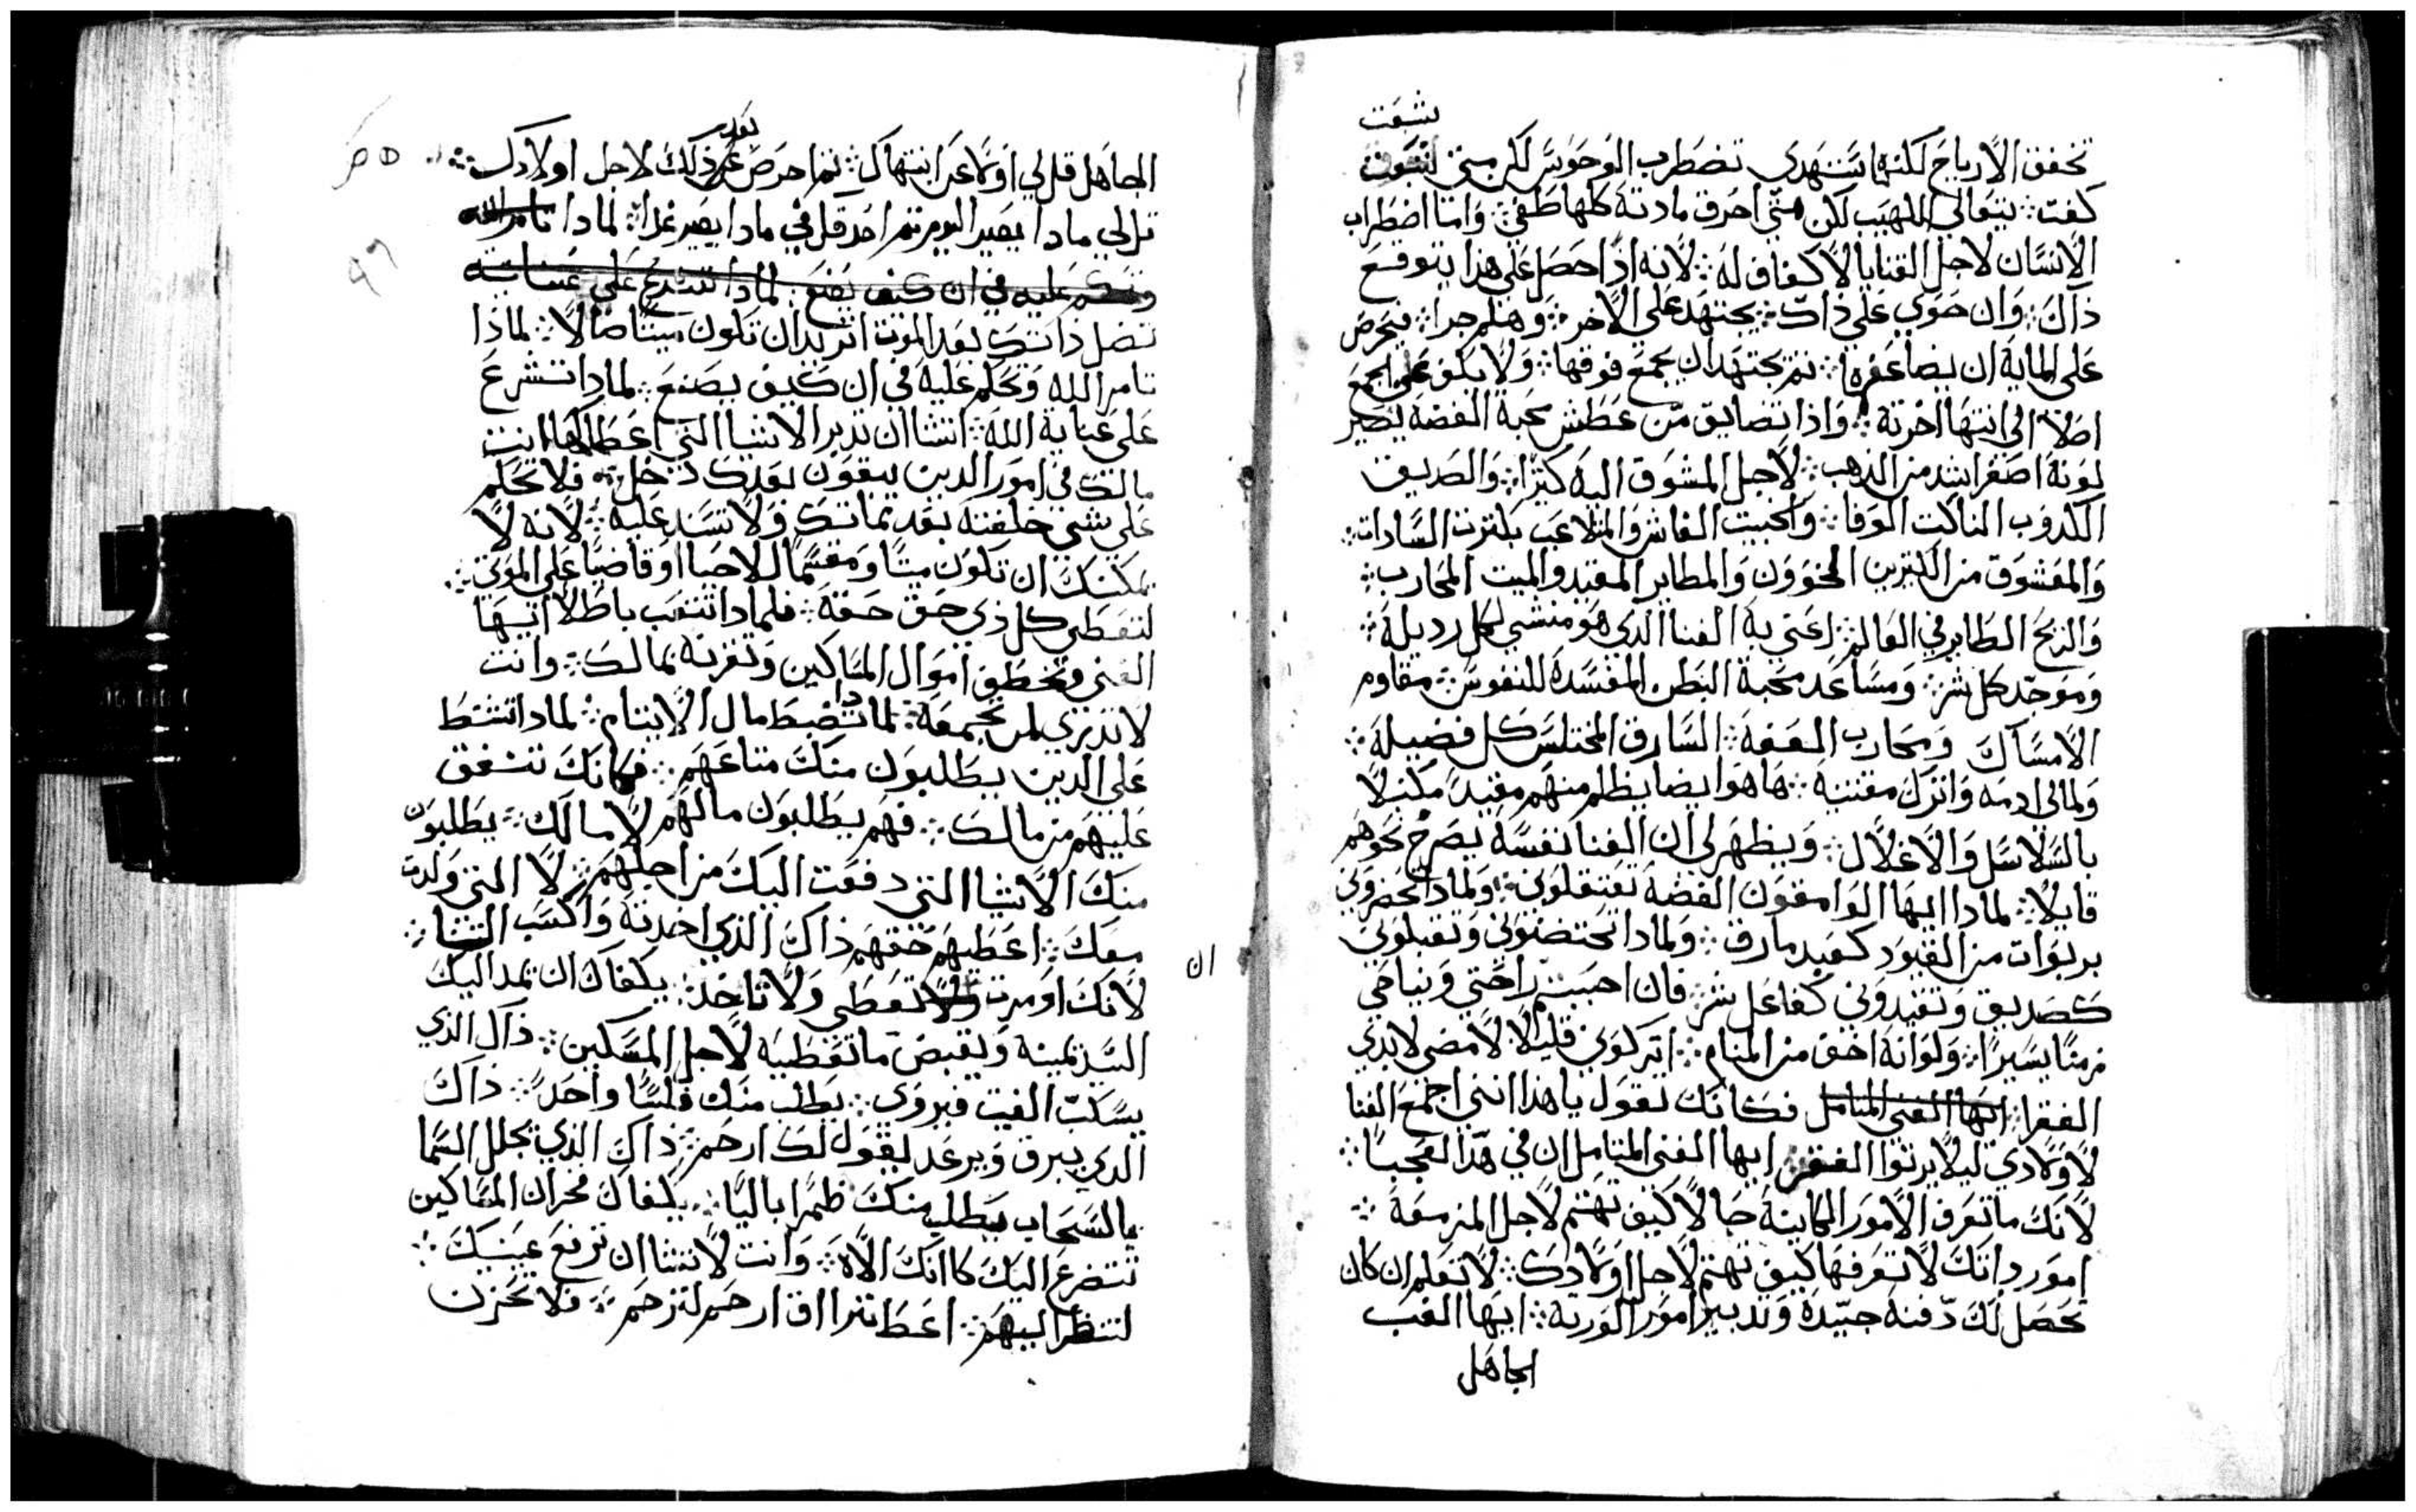 نشبت
تخفق الارياح لكنها ستهدى تضطرب الوحوش لكن متى
كفت ⁘ يتعالى اللهيب لكن متى احرق مادته كلها طفى ⁘ واما اضطراب
الانسان لاجل القنايا لا كفاف له ⁘ لانه اذا حصل على هذا يتوقع
ذاك ⁘ وان حوي على ذاك ⁘ يجتهد على الاخر ⁘ وهلم جرا ⁘ فيحرص
على الماية ان يضاعفها ⁘ ثم يجتهد ان يجمع فوقها ⁘ ولا يكف عن الجمع
اصلا الى انتها اخرته ⁘ واذا تضايق من عطش محبة الفضة يصير
لونه اصفر اشد من الذهب ⁘ لاجل المشوق اليه كثيرا ⁘ والصديق
الكدوب الناكت الوفا ⁘ والخبيت الغاش والمتلاعب بكثرت السادات ⁘
والمعشوق من الكثيرين الخوون والطاير المقيد والميت المحارب ⁘
والريح الطاير في العالم ⁘ اعني به الغنا الذى هو منشي لكل رديلة ⁘
وموجد كل شر ⁘ ومساعد محبة البطن المفسدة للنفوس ⁘ مقاوم
الامساك ومحارب العفة ⁘ السارق المختلس كل فضيلة ⁘
ولمالى ادمه واترك مقتنيه ⁘ ها هوا يضا يظلم منهم مقيدا مكبلا
بالسلاسل والاغلال ⁘ ويظهر لى ان الغنا نفسه يصرخ نحوهم
قايلا ⁘ لمادا ايها الوامقون الفضة تعتقلونى ⁘ ولمادا تحفرونى
بربوات من القيود كعبد مارق ⁘ ولمادا تحتضنونى وتقبلونى
كصديق وتقيدونى كفاعل شر ⁘ فان احببتم راحتي ونياحي
زمنا يسيرا ⁘ ولو انه اخف من المنام ⁘ اتركونى قليلا لامضى لايدي
الفقرا ⁘ ايها الغنى المتامل فكانك تقول يا هذا اننى اجمع الغنا
لاولادي ليلا يرثوا الفقر ⁘ ايها الغنى المتامل ان في هذا لعجبا ⁘
لانك ما تعرف الامور الكاينة حالا كيف تهتم لاجل المزمعة ⁘
امور داتك لا تعرفها كيف تهتم لاجل اولادك ⁘ لا تعلم ان كان
تحصل لك دفنة جيدة وتدبير امور الورثة ⁘ ايها الغب
الجاهل
الجاهل قل لي اولا عن انتهاك ⁘ ثم احرص بعد ذلك لاجل اولادك ⁘
قل لي مادا يصير اليوم ثم احد قل في مادا يصير غدا ⁘ لمادا تامر الله
وتحكم عليه في ان كيف يصنع ⁘ لمادا تتشرع على عنايته
تضل ذاتك بعد الموت اتريد ان تكون ميتا ضالا ⁘ لماذا
تامر الله وتحكم عليه في ان كيف يصنع ⁘ لمادا تتشرع
على عناية الله ⁘ اتشا ان تدبر الاشيا التى اعطاكها انت
مالك في امور الدين يبقون بعدك دخل ⁘ فلا تحكم
على شي خلفته بعد مماتك ولا تسند عليه ⁘ لانه لا
يمكنك ان تكون ميتا ومقسما للاحيا او قاضيا على الموتى ⁘
لتعطى كل ذي حق حقه ⁘ فلمادا تتعب باطلا ايها
الغنى وتخطف اموال المساكين وتقرنه بمالك ⁘ وانت
لا تدري لمن تجمعه ⁘ لمادا تضبط مال الايتام ⁘ لمادا تشطط
على الدين يطلبون منك متاعهم ⁘ فكانك تشفق
عليهم من مالك ⁘ فهم يطلبون مالهم لا مالك ⁘ يطلبون
منك الاشيا التى دفعت اليك من اجلهم ⁘ لا التى ولدت
معك ⁘ اعطيهم حقهم ذاك الذي اخدته واكسب الثنا ⁘
لانك اومرت ان تعطى ولا تاخد ⁘ يكفاك ان يمد اليك
السيد يمينه ويقبض ما تعطيه لاجل المسكين ⁘ ذاك الذي
يسكب الغيت فيروى ⁘ يطلب منك فلسا واحدا ⁘ ذاك
الدي يبرق ويرعد يقول لك ارحم ⁘ ذاك الذي يجلل السما
بالسحاب يطلب منك طمرا باليا ⁘ يكفاك فخرا ان المساكين
تتضرع اليك كانك الاه ⁘ وانت لا تشا ان ترفع عينيك ⁘
لتنظر اليهم ⁘ اعط تترااف ارحم لترحم ⁘ فلا تحزن
ان